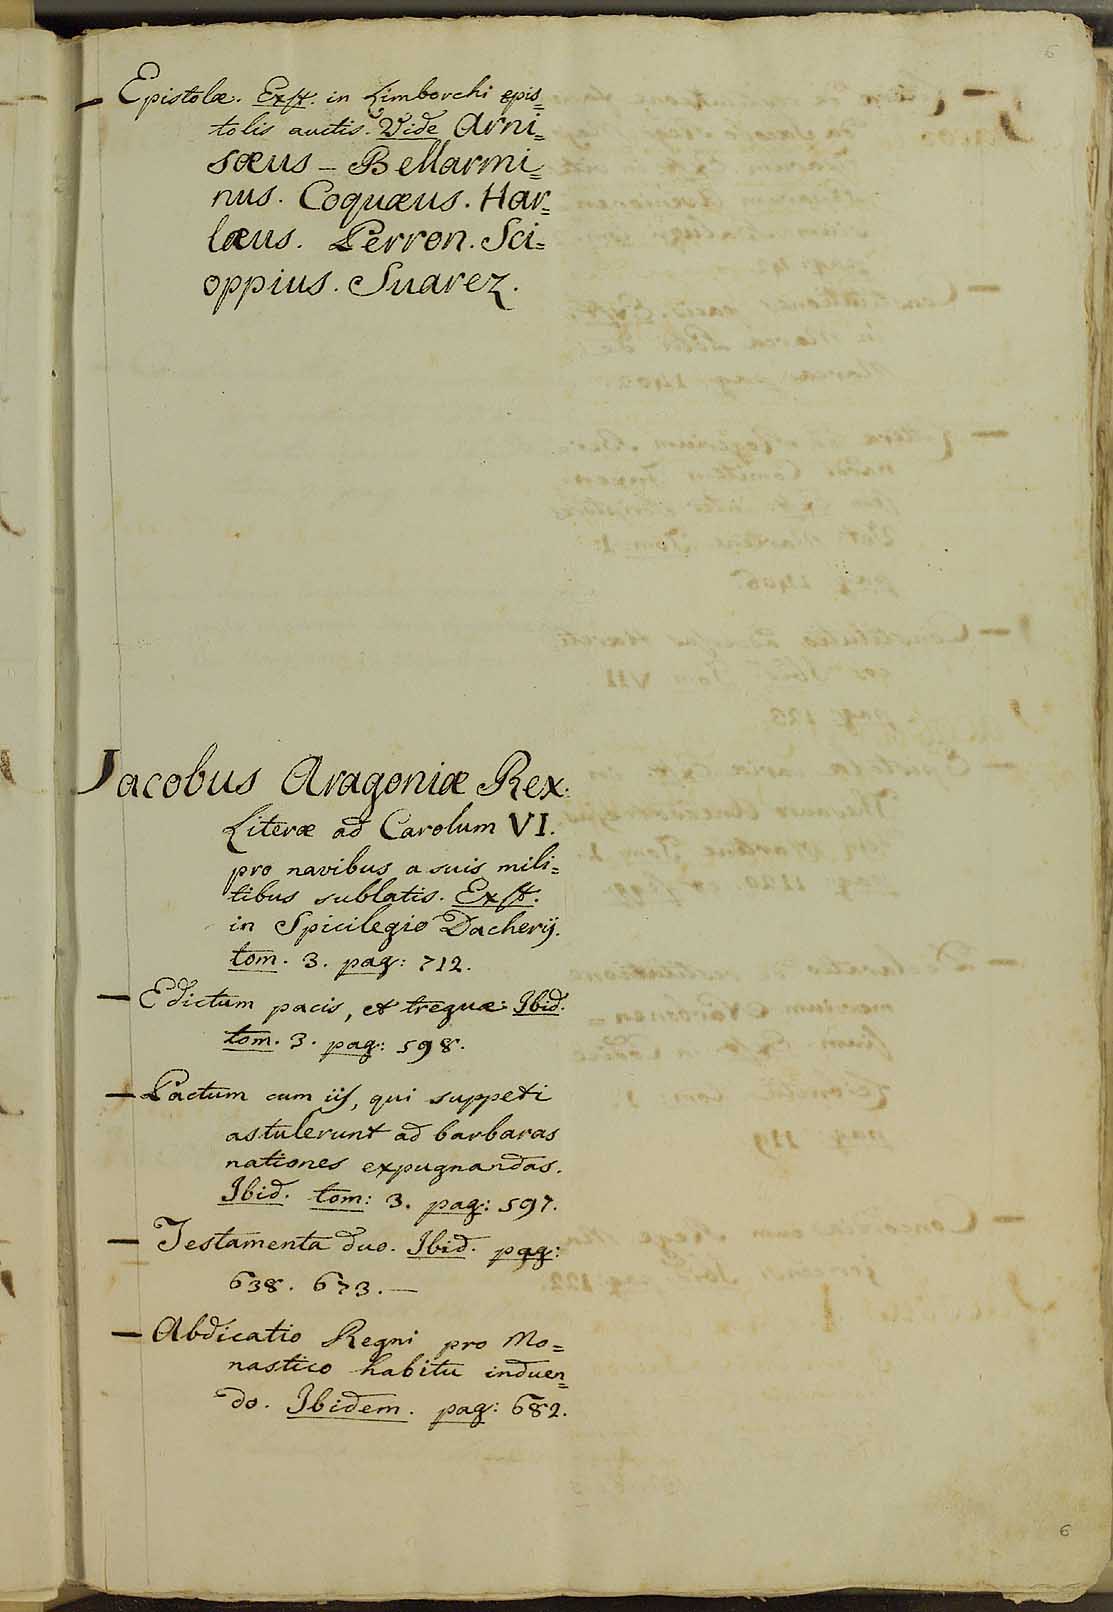 6
— Epistolæ. Exst. in Limborchi epis=
tolis auctis. Vide Arni=
sæus – Bellarmi=
nus. Coquæus. Har=
læus. Perron. Sci=
oppius. Suarez.
Jacobus Aragoniæ Rex.
Literæ ad Carolum VI.
pro navibus a suis mili=
tibus sublatis. Exst.
in Spicilegio Dacherij.
tom. 3. pag: 712.
— Edictum pacis, et treguæ: Ibid.
tom. 3. pag: 598.
— Pactum cum iis, qui suppeti
as tulerunt ad barbaras
nationes expugnandas.
Ibid. tom: 3. pag: 597.
— Testamenta duo. Ibid. pag:
638. 673. —
— Abdicatio Regni pro Mo=
nastico habitu induen=
do. Ibidem. pag: 682.
6